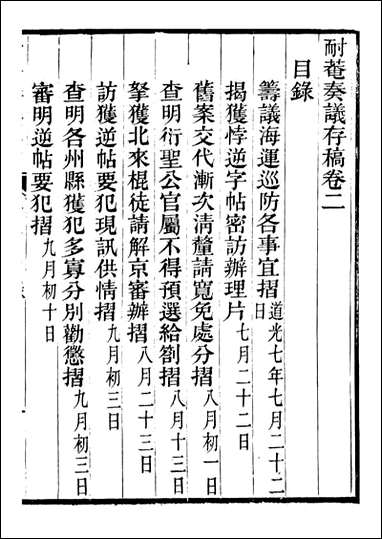 耐菴奏議存稿卷二
目錄
籌議海運巡防各事宜摺道光七年七月二十二日
揭獲悖逆字帖密訪辦理片七月二十二日
舊案交代漸次清釐請寬免處分摺八月初一日
查明衍聖公官屬不得預選給劄摺八月十三日
拏獲北來棍徒請解京審辦摺八月二十三日
訪獲逆帖要犯現訊供情摺九月初三日
查明各州縣獲犯多寡分別勸懲摺九月初三日
審明逆帖要犯摺九月初十日